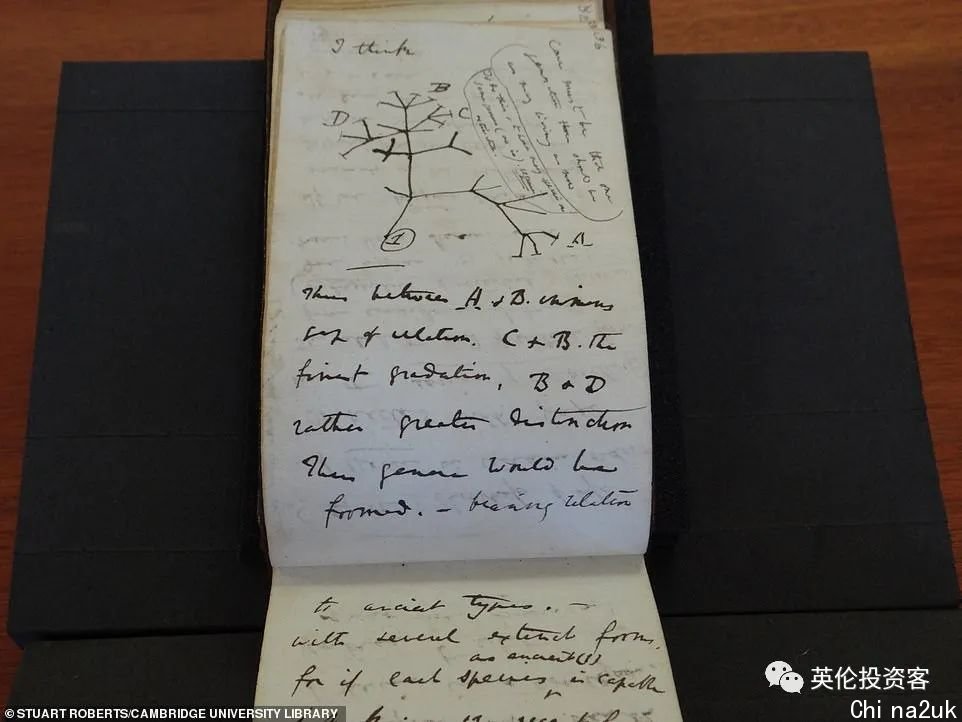 36
I think
Case must be that one
generation then should be
as many living as now
To do this & to have many species in
same genus (as is) requires
extinction.
B
D
C
A
1
Thus between A & B. immense
gap of relation. C & B. the
finest gradation, B & D
rather greater distinction
Thus genera would be
formed. — bearing relation
to ancient types. —
with several extinct forms,
as ancient (1)
for if each species is capable
英伦投资客
Chi na2uk
© STUART ROBERTS/CAMBRIDGE UNIVERSITY LIBRARY